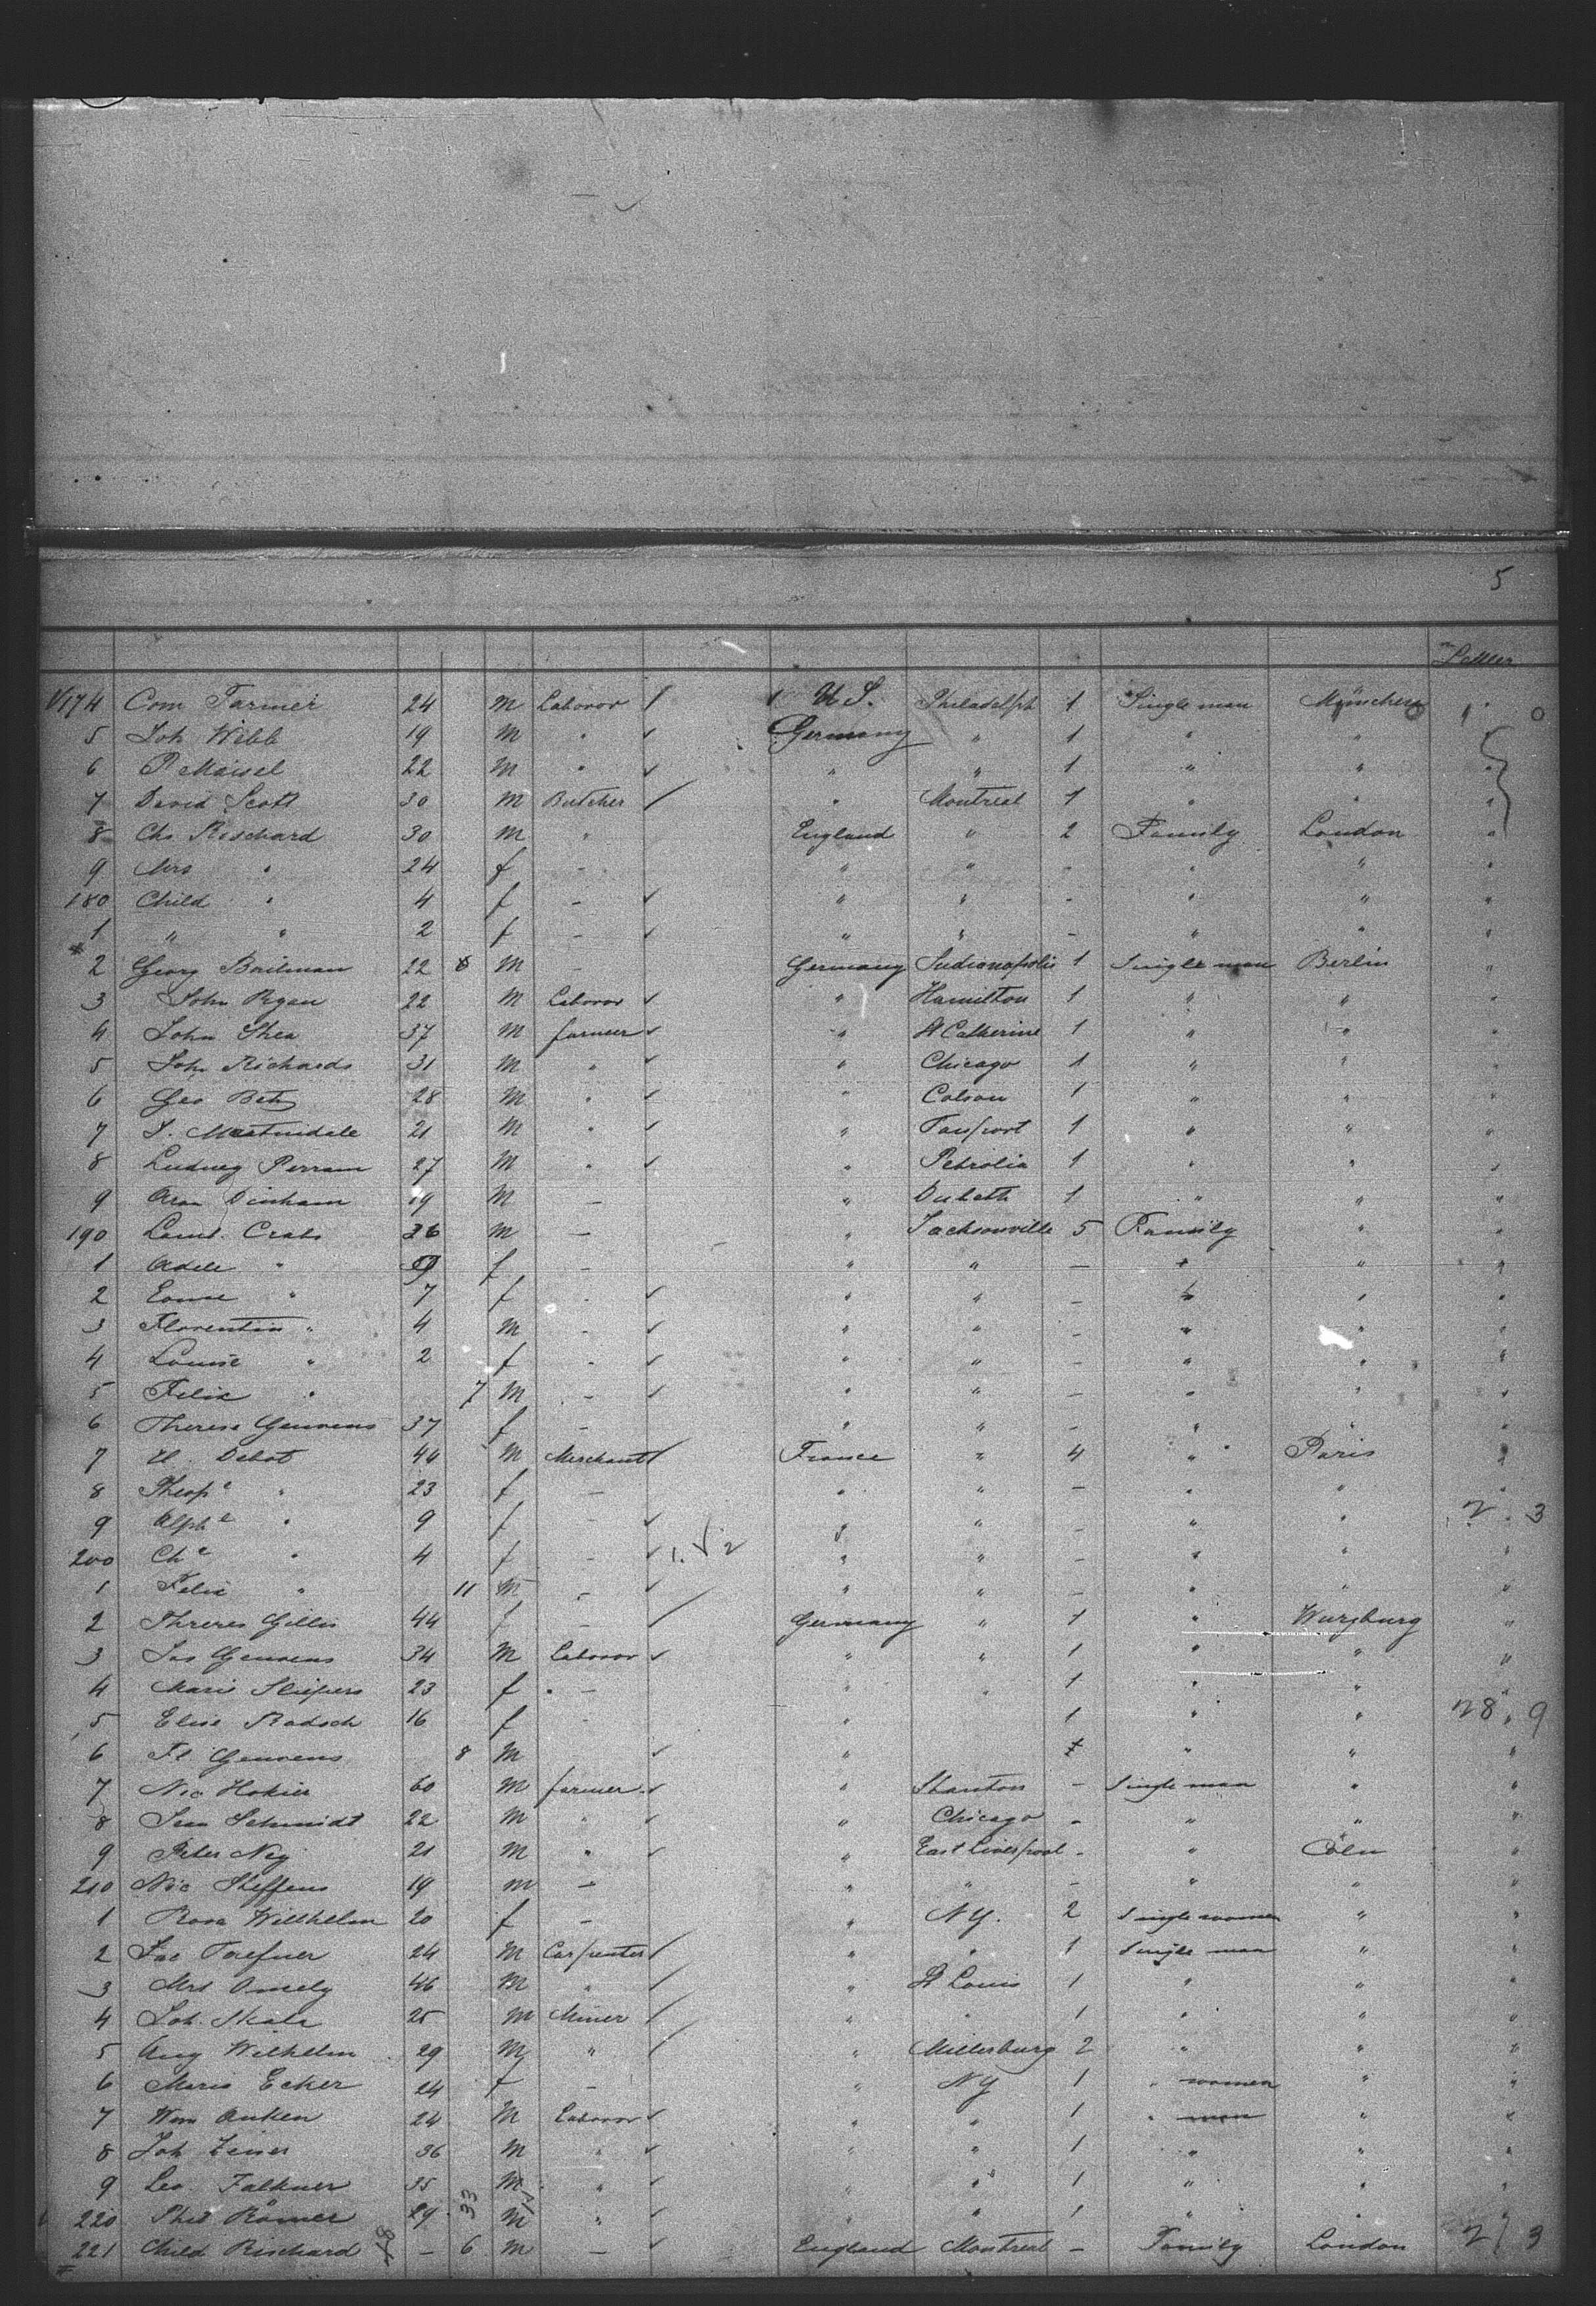 5
Settler
174 Com Farmer 24 M Laborer 1 U S. Philadelph 1 Single man München
5 Joh Wibb 19 M " Germany " 1 " " "
6 P Maisel 22 M " " " 1 " " "
7 David Scott 30 M Butcher " Montreal 1 " " "
8 Chs Rischard 30 M " England " 2 Family London "
9 Mrs " 24 f - " " - " " "
180 Child " 4 f - " " - " " "
1 " " 2 f - " " - " " "
2 Georg 22 M - Germany Indianapolis 1 Single man Berlin "
3 John Ryan 22 M Laborer " Hamilton 1 " " "
4 John Shea 37 M farmer " St Catherine 1 " " "
5 John Richards 31 M " " Chicago 1 " " "
6 Geo Betz 28 M " " Colson 1 " " "
7 J. Martindale 21 M " " 1 " " "
8 Ludwig Perram 27 M " " Petrolia 1 " " "
9 Aron Dinham 19 M - " Duluth 1 " " "
190 Crabs 36 M - " Jacksonville 5 Family " "
1 Adele " 9 f - " " - " " "
2 " 7 f - " " - " " "
3 Florentin " 4 M - " " - " " "
4 Louise " 2 f - " " - " " "
5 Felix " 7 M - " " - " " "
6 Therese Geurens 37 f - " " - " " "
7 H. Debot 44 M Merchant France " 4 " Paris "
8 Theop e " 23 f - " " - " " "
9 Alph e " 9 f - " " - " " " 2 3
200 Ch e " 4 f - 1. 2 " " - " " "
1 Felix " 11 M - " " - " " "
2 Threres Gilles 44 f - Germany " 1 " Wurzburg "
3 Jas Geurens 34 M Laborer " " 1 " " "
4 Marie Sliepers 23 f - " " 1 " " "
5 Elise Radsch 16 f - " 1 " " 28 9
6 Fl Geurens 8 M " " " "
7 Nic Hokier 60 M farmer " Stanton - Single man " "
8 Jean Schmidt 22 M " " Chicago - " " "
9 Peter Ney 21 M " " East Liverpool - " Cöln "
210 Nic Steffens 19 M - " " - " " "
1 Rosa Wilhelm 20 f - " N Y. 2 Single women " "
2 Jac 24 M Carpenter " " 1 Single man " "
3 Mrs 46 M " " St Louis 1 " " "
4 Joh. Skala 25 M Miner " " 1 " " "
5 Aug Wilhelm 29 M " " Millersburg 2 " " "
6 Maria Ecker 24 f - " N Y 1 " women " "
7 Wm Anken 24 M Laborer " " 1 " man " "
8 Joh Zeiser 36 M " " " 1 " " "
9 Leo. Falkner 35 M " " " 1 " " "
220 Phil Römer 29 33 M " " " 1 " " "
221 Child Rischard - 6 M - England Montreal - Family London 2 3